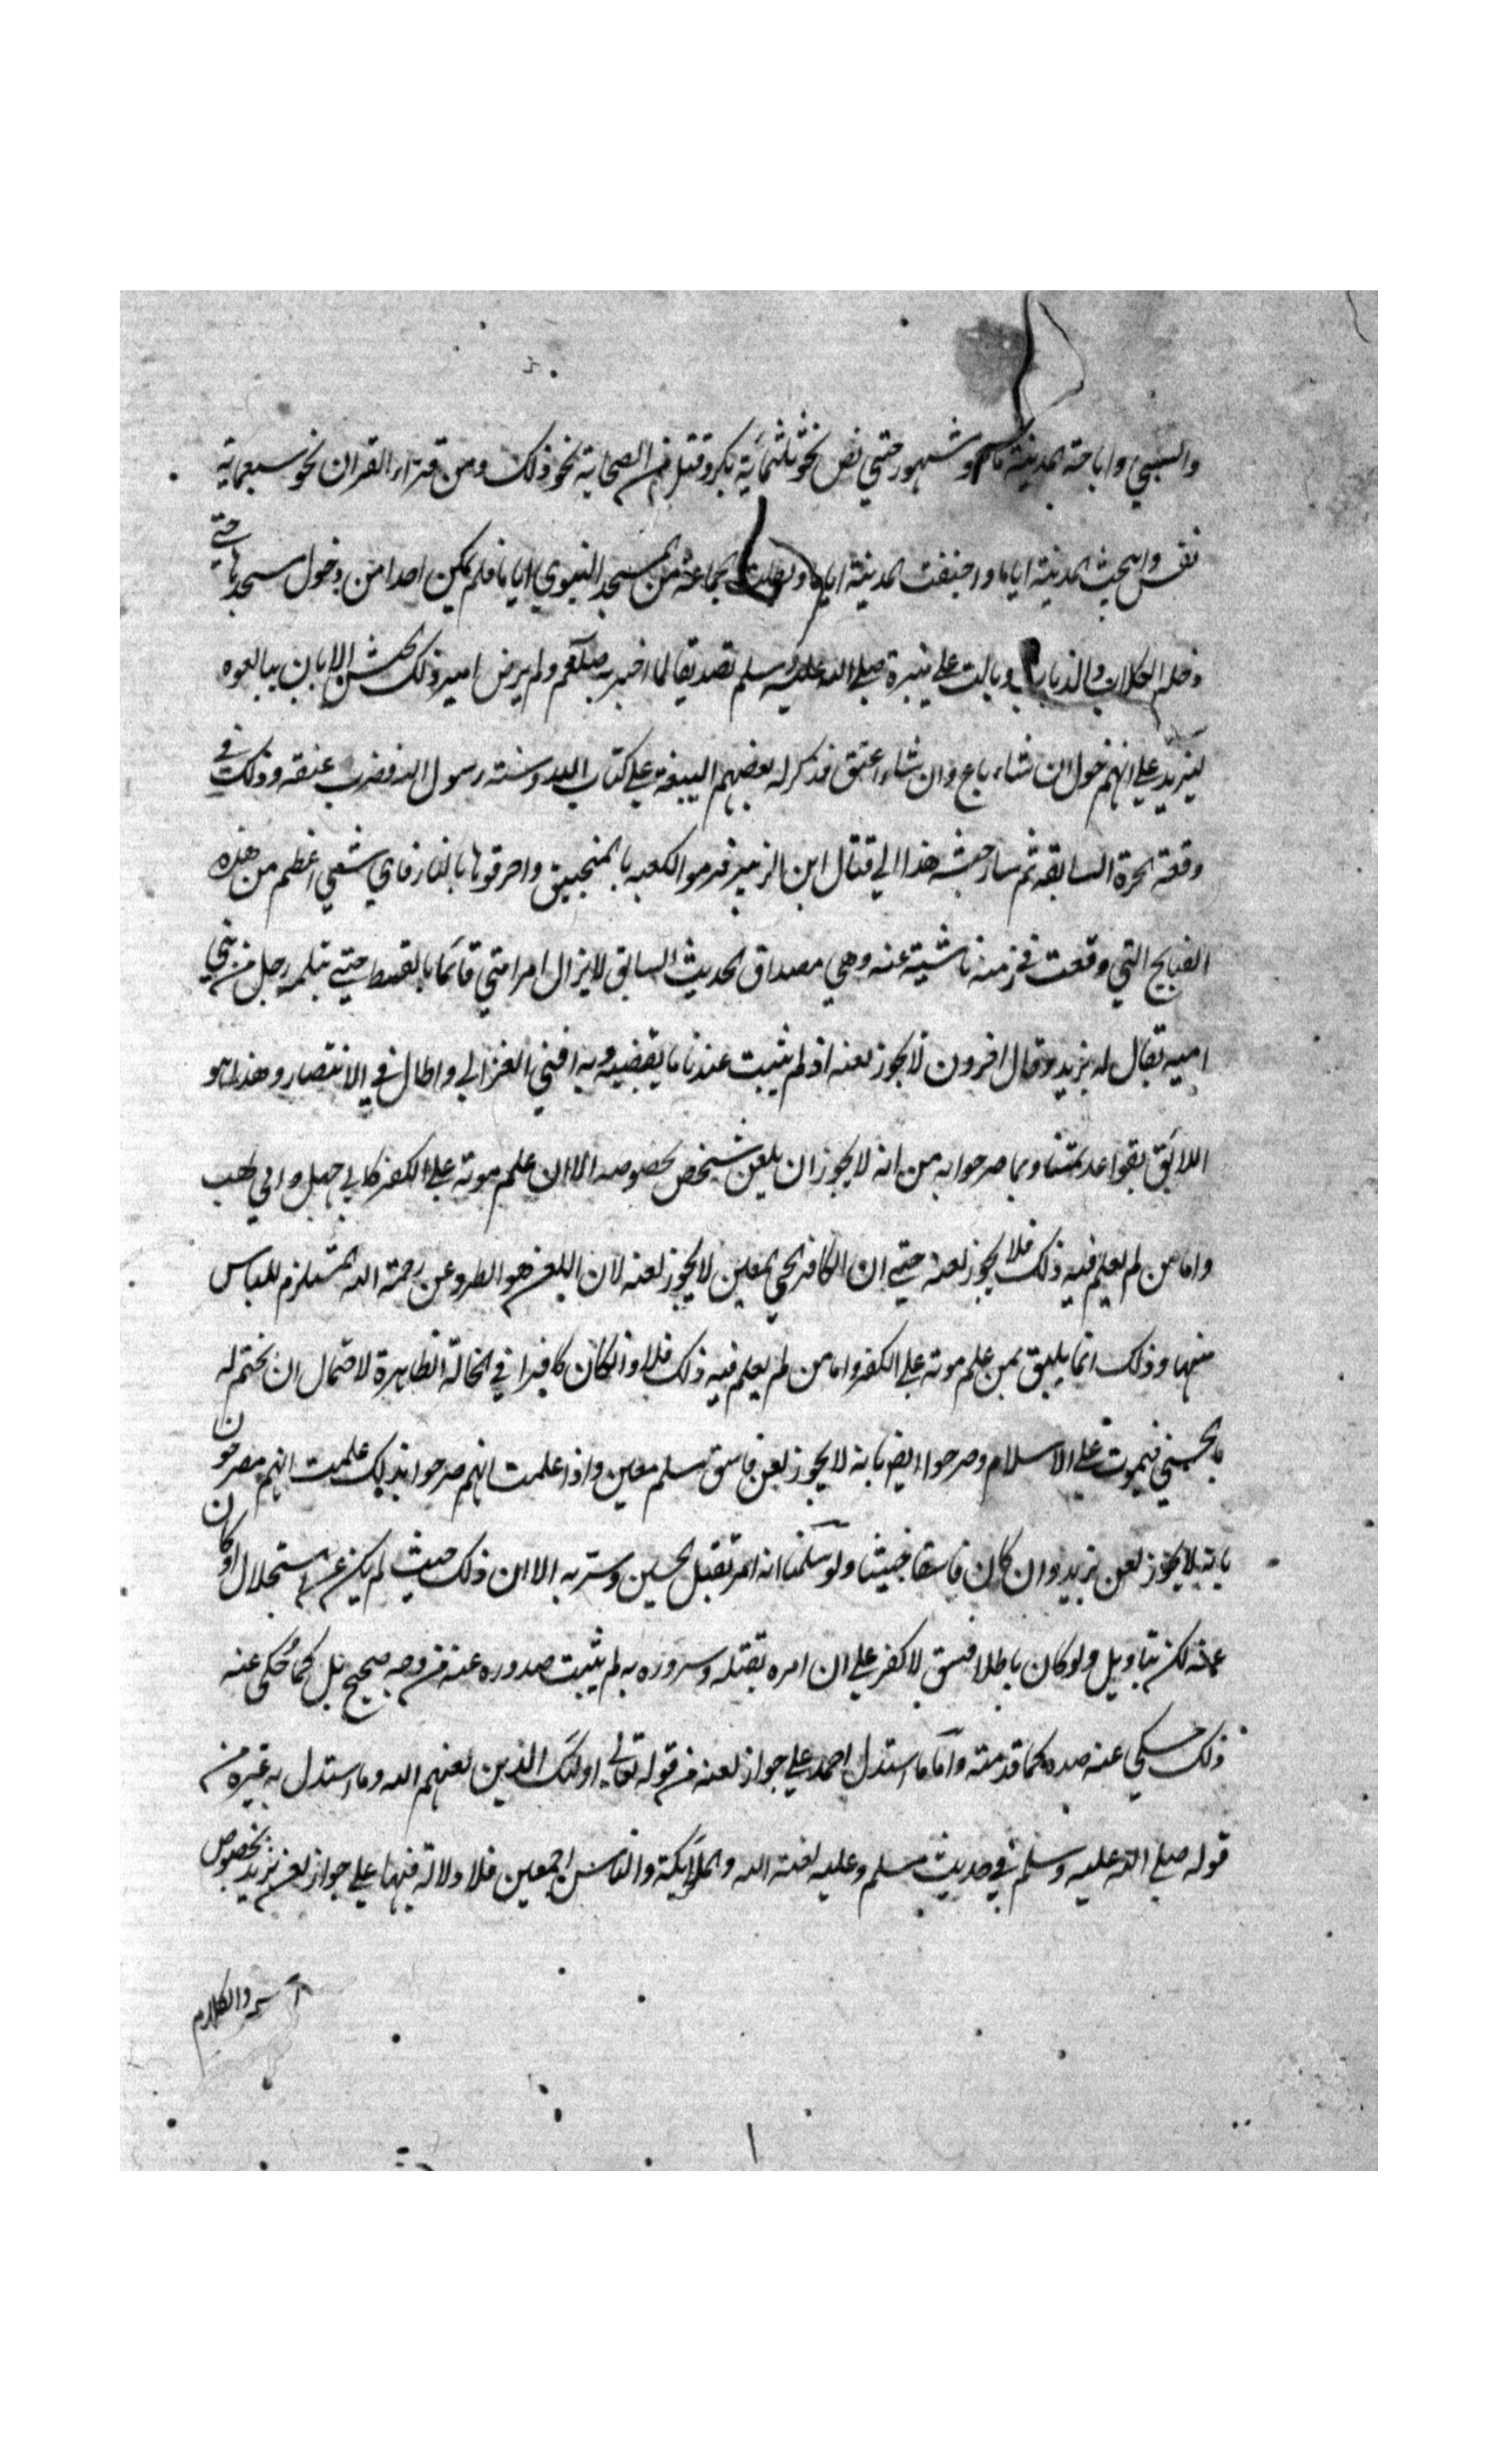 والسبي واباحة المدينة ما هو مشهور حتي فض نحو ثلثمائة بكر وقتل من الصحابة نحو ذلك ومن قراء القران نحو سبعماية
نفس وابيحت المدينة اياما واخيفت المدينة اياما وبطلت الجماعة من المسجد النبوي اياما فلم يمكن احدا من دخول مسجدها حتي
دخله الكلاب والذباب وبالت علي منبره صلي الله عليه وسلم تصديقا لما اخبر به صلعم ولم يرض امير ذلك الجيش الا بان يبالعوه
ليزيد علي انهم خول ان شاء باع وان شاء اعتق فذكر له بعضهم البيعة علي كتاب الله وسنة رسول الله فضرب عنقه وذلك في
وقعة الحرة السابقة ثم سار جيشه هذا الي قتال ابن الزبير فرموا الكعبه بالمنجنيق واحرقوها بالنار فاي شي اعظم من هذه
القبايح التي وقعت في زمنه ناشية عنه وهي مصداق الحديث السابق لا يزال امر امتي قائما بالقسط حتي يثلمه رجل من بني
اميه يقال له يزيد وقال اخرون لا يجوز لعنه اذ لم يثبت عندنا ما يقتضيه وبه افتي الغزالي واطال في الانتصار وهذا هو
اللائق بقواعد ائمتنا وبما صرحوا به من انه لا يجوز ان يلعن شخص بخصوصه الا ان علم موته علي الكفر كابي جهل وابي لهب
واما من لم يعلم فيه ذلك فلا يجوز لعنه حتي ان الكافر الحي المعين لا يجوز لعنه لان اللعن هو الطرد عن رحمة الله المستلزم للياس
منها وذلك انما يليق بمن علم موته علي الكفر واما من لم يعلم فيه ذلك فلا وان كان كافرا في الحالة الظاهرة لاحتمال ان يختم له
بالحسني فيموت علي الاسلام وصرحوا ايضا بانه لا يجوز لعن فاسق مسلم معين واذا علمت انهم صرحوا بذلك علمت انهم مصرحون
بانه لا يجوز لعن يزيد وان كان فاسقا خبيثا ولو سلمنا انه امر بقتل الحسين وسر به الا ان ذلك حيث لم يكن عن استحلال او كان
عنه لكن بتاويل ولو كان باطلا فسق لا كفر علي ان امره بقتله وسروره به لم يثبت صدوره عنه من وجه صحيح بل كما حكي عنه
ذلك حكي عنه ضده كما قدمته واما ما استدل احمد علي جواز لعنه من قوله تعالي اولئك الذين لعنهم الله وما استدل به غيره من
قوله صلي الله عليه وسلم في حديث مسلم وعليه لعنة الله والملائكة والناس اجمعين فلا دلالة فيها علي جواز لعن يزيد بخصوص
اسمه والكلام